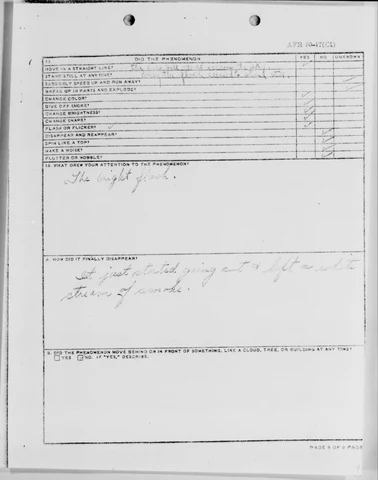 AFR 80-17(C1)
13. DID THE PHENOMENON YES NO UNKNOWN
MOVE IN A STRAIGHT LINE?
STAND STILL AT ANY TIME?
SUDDENLY SPEED UP AND RUN AWAY?
BREAK UP IN PARTS AND EXPLODE?
CHANGE COLOR?
GIVE OFF SMOKE?
CHANGE BRIGHTNESS?
CHANGE SHAPE?
FLASH OR FLICKER?
DISAPPEAR AND REAPPEAR?
SPIN LIKE A TOP?
MAKE A NOISE?
FLUTTER OR WOBBLE?
WHAT DREW YOUR ATTENTION TO THE PHENOMENON?
The bright flash.
A. HOW DID IT FINALLY DISAPPEAR?
It just started going out & left a white
stream of smoke.
DID THE PHENOMENON MOVE BEHIND OR IN FRONT OF SOMETHING, LIKE A CLOUD, TREE, OR BUILDING AT ANY TIME?
YES NO. IF "YES," DESCRIBE.